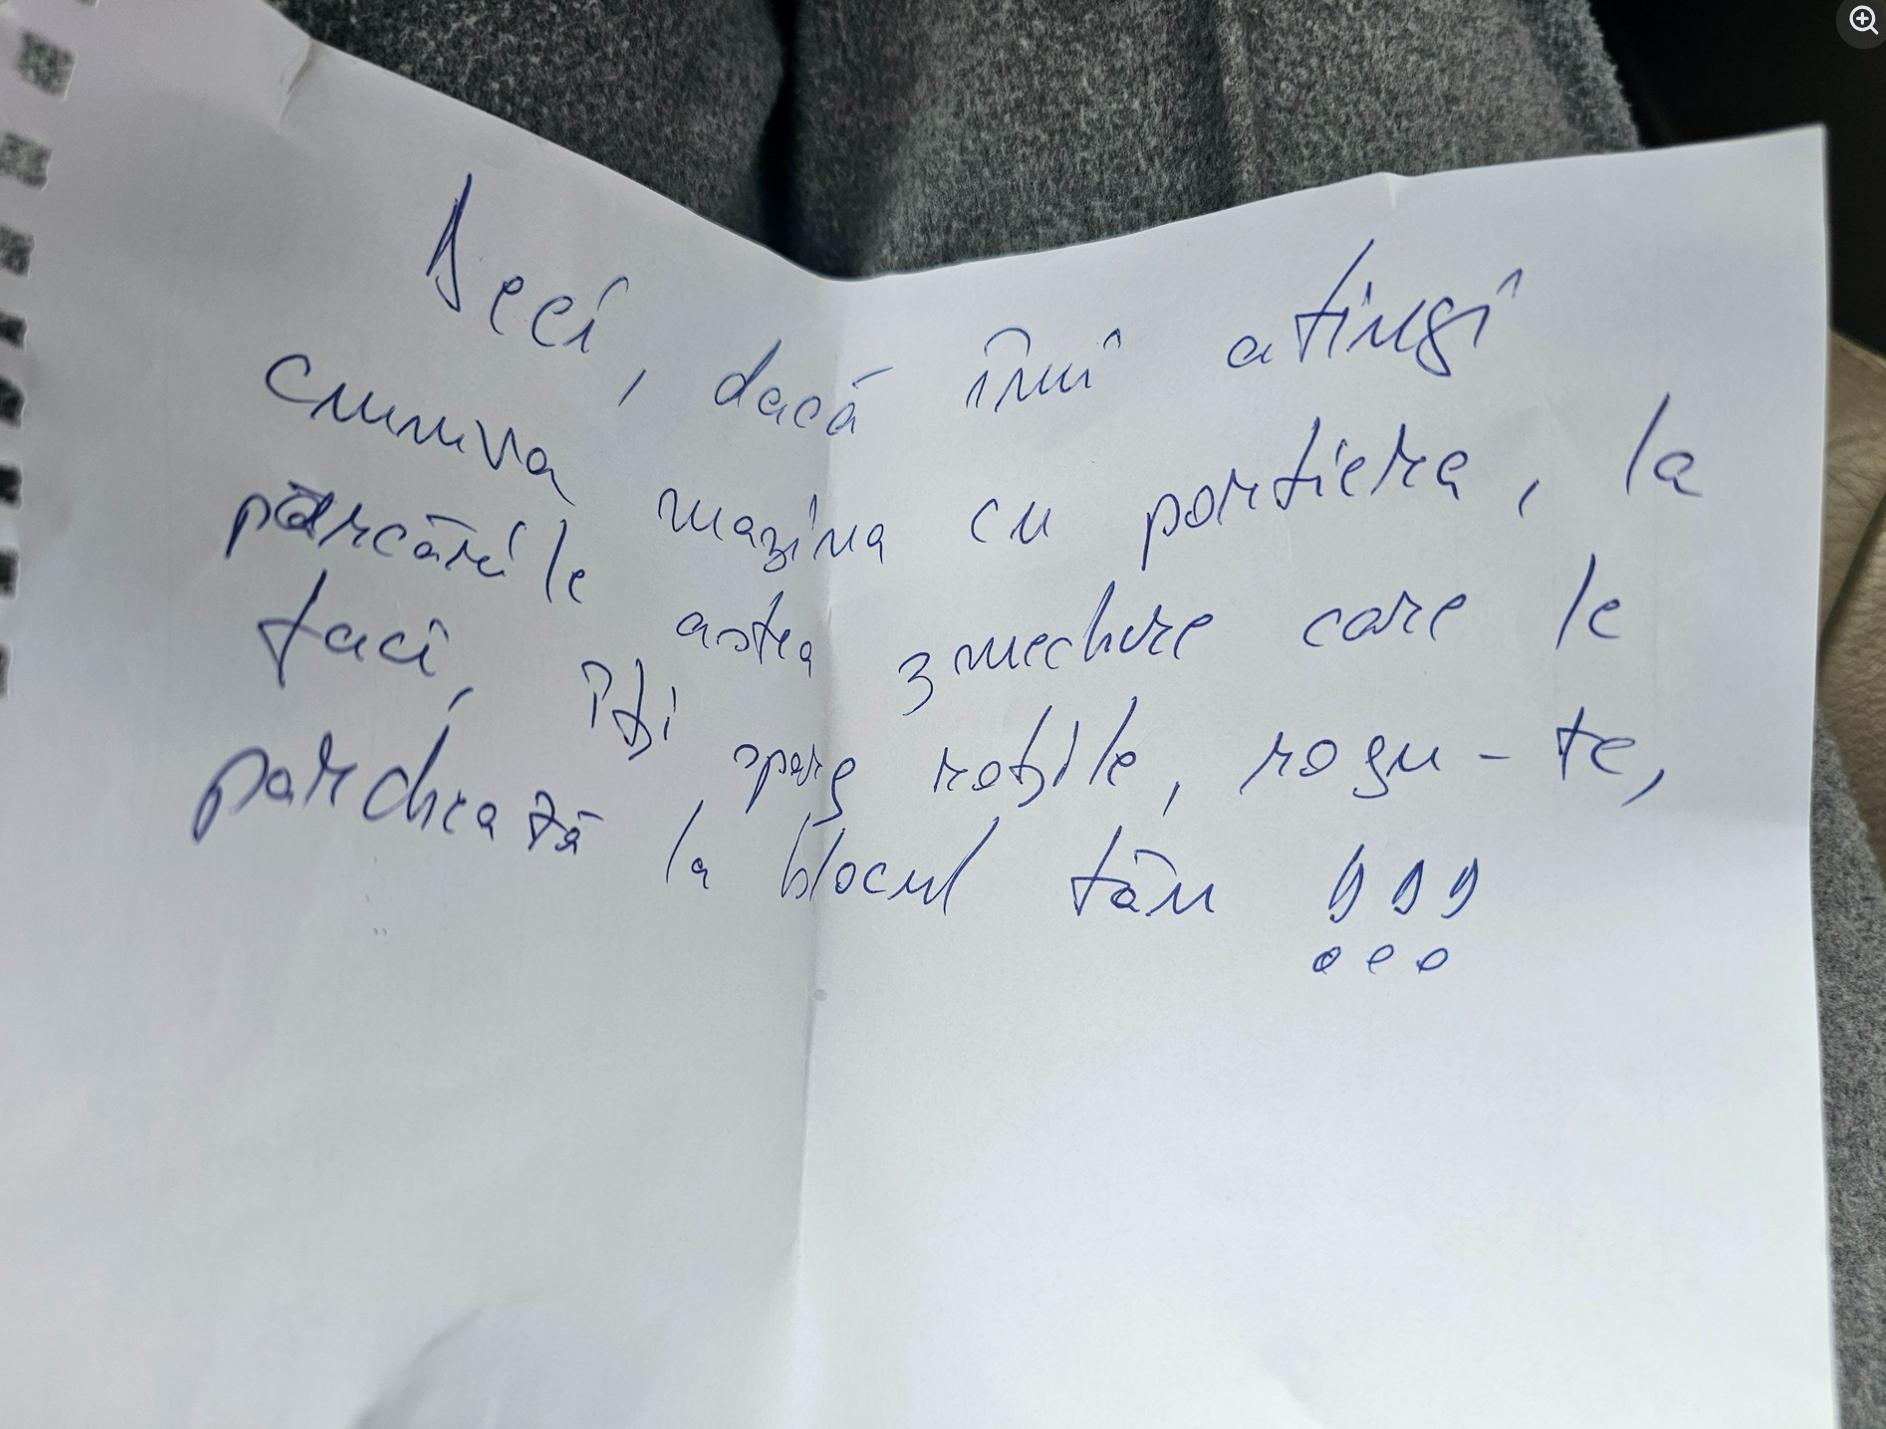 Deci, dacă îmi atingi
cumva mazina cu portiera, la
părcările astea zmechere care le
faci, îți sparg roțile, rogu-te,
parchează la blocul tău !!!